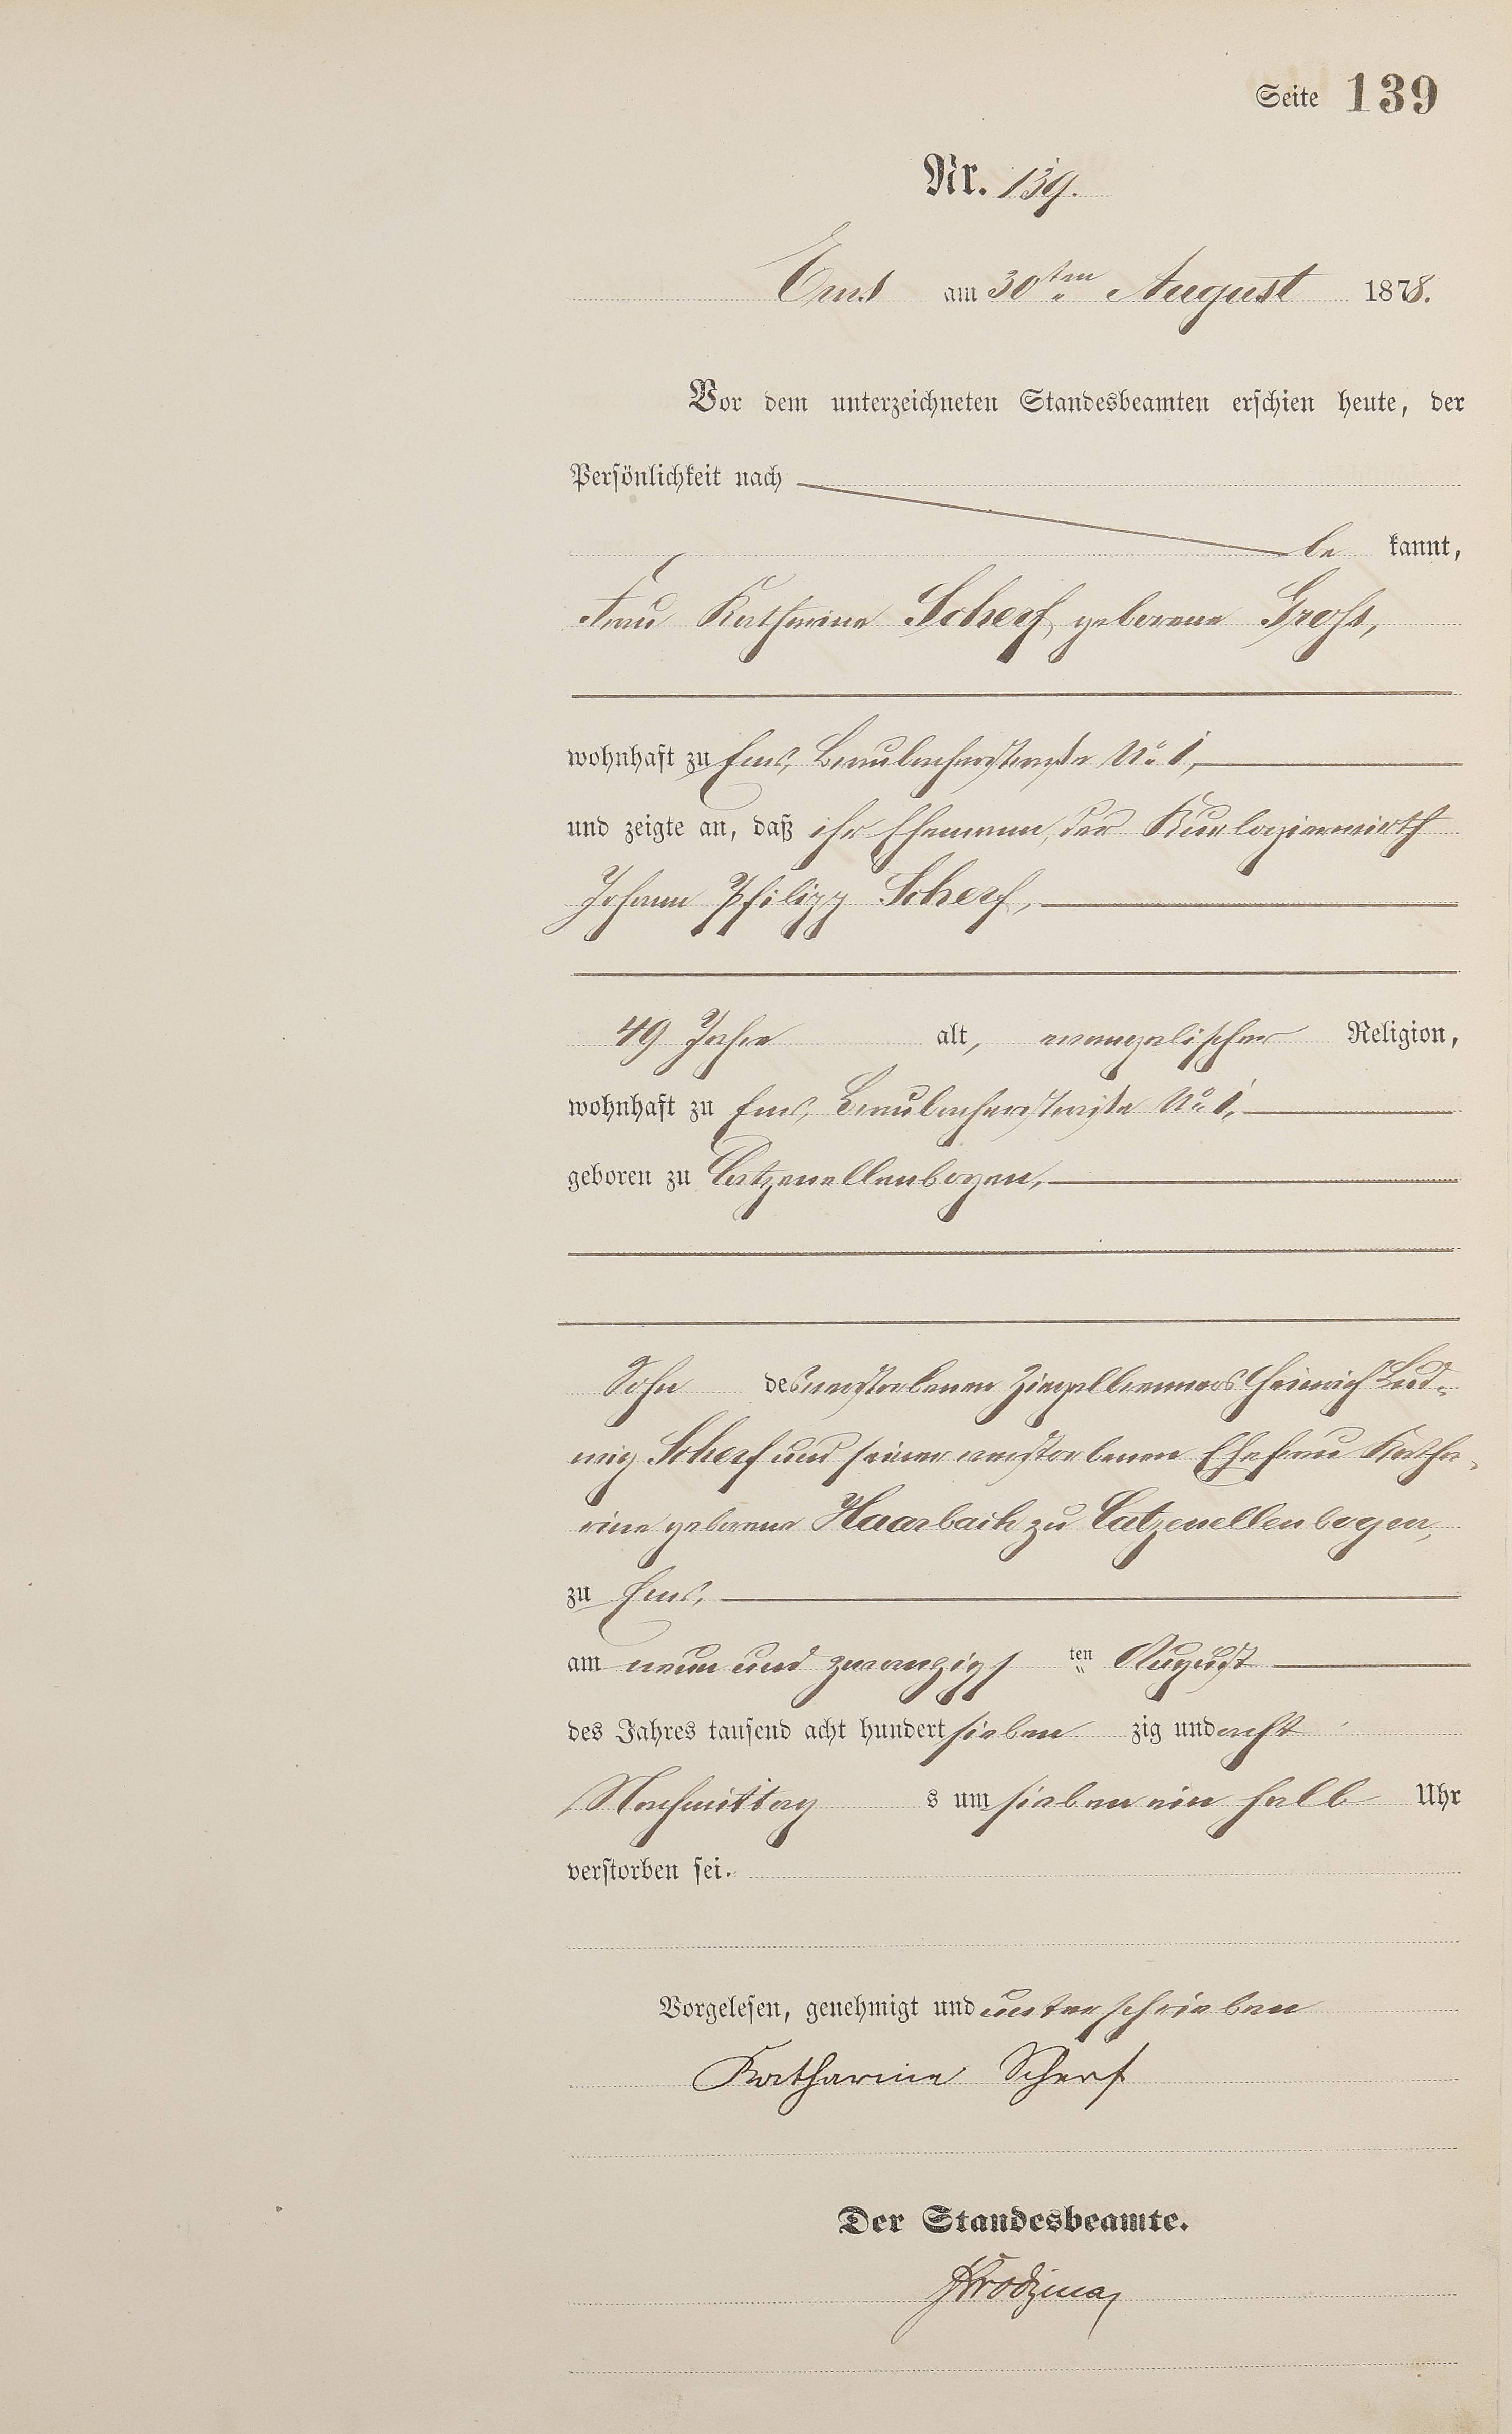 Seite 139
Nr. 139.
Ems am 30ten August 1878.
Vor dem unterzeichneten Standesbeamten erschien heute, der
Persönlichkeit nach
be kannt,
Frau Katharine Scherf geborene Groß,
wohnhaft zu Ems, Braubacherstraße No 1,
und zeigte an, daß ihr Ehemann, der Kurlogierwirth
Johann Philipp Scherf,
49 Jahre alt, evangelischer Religion,
wohnhaft zu Ems, Braubacherstraße No 1,
geboren zu Catzenellenbogen,
Sohn des verstorbenen Ziegelbrenners Heinrich Lud-
wig Scherf und seiner verstorbenen Ehefrau Katha-
rine geborene Haarbach zu Catzenellenbogen,
zu Ems,
am neun und zwanzigs ten August
des Jahres tausend acht hundert sieben zig und acht
Nachmittag s um sieben ein halb Uhr
verstorben sei.
Vorgelesen, genehmigt und unterschrieben
Katharine Scherf
Der Standesbeamte.